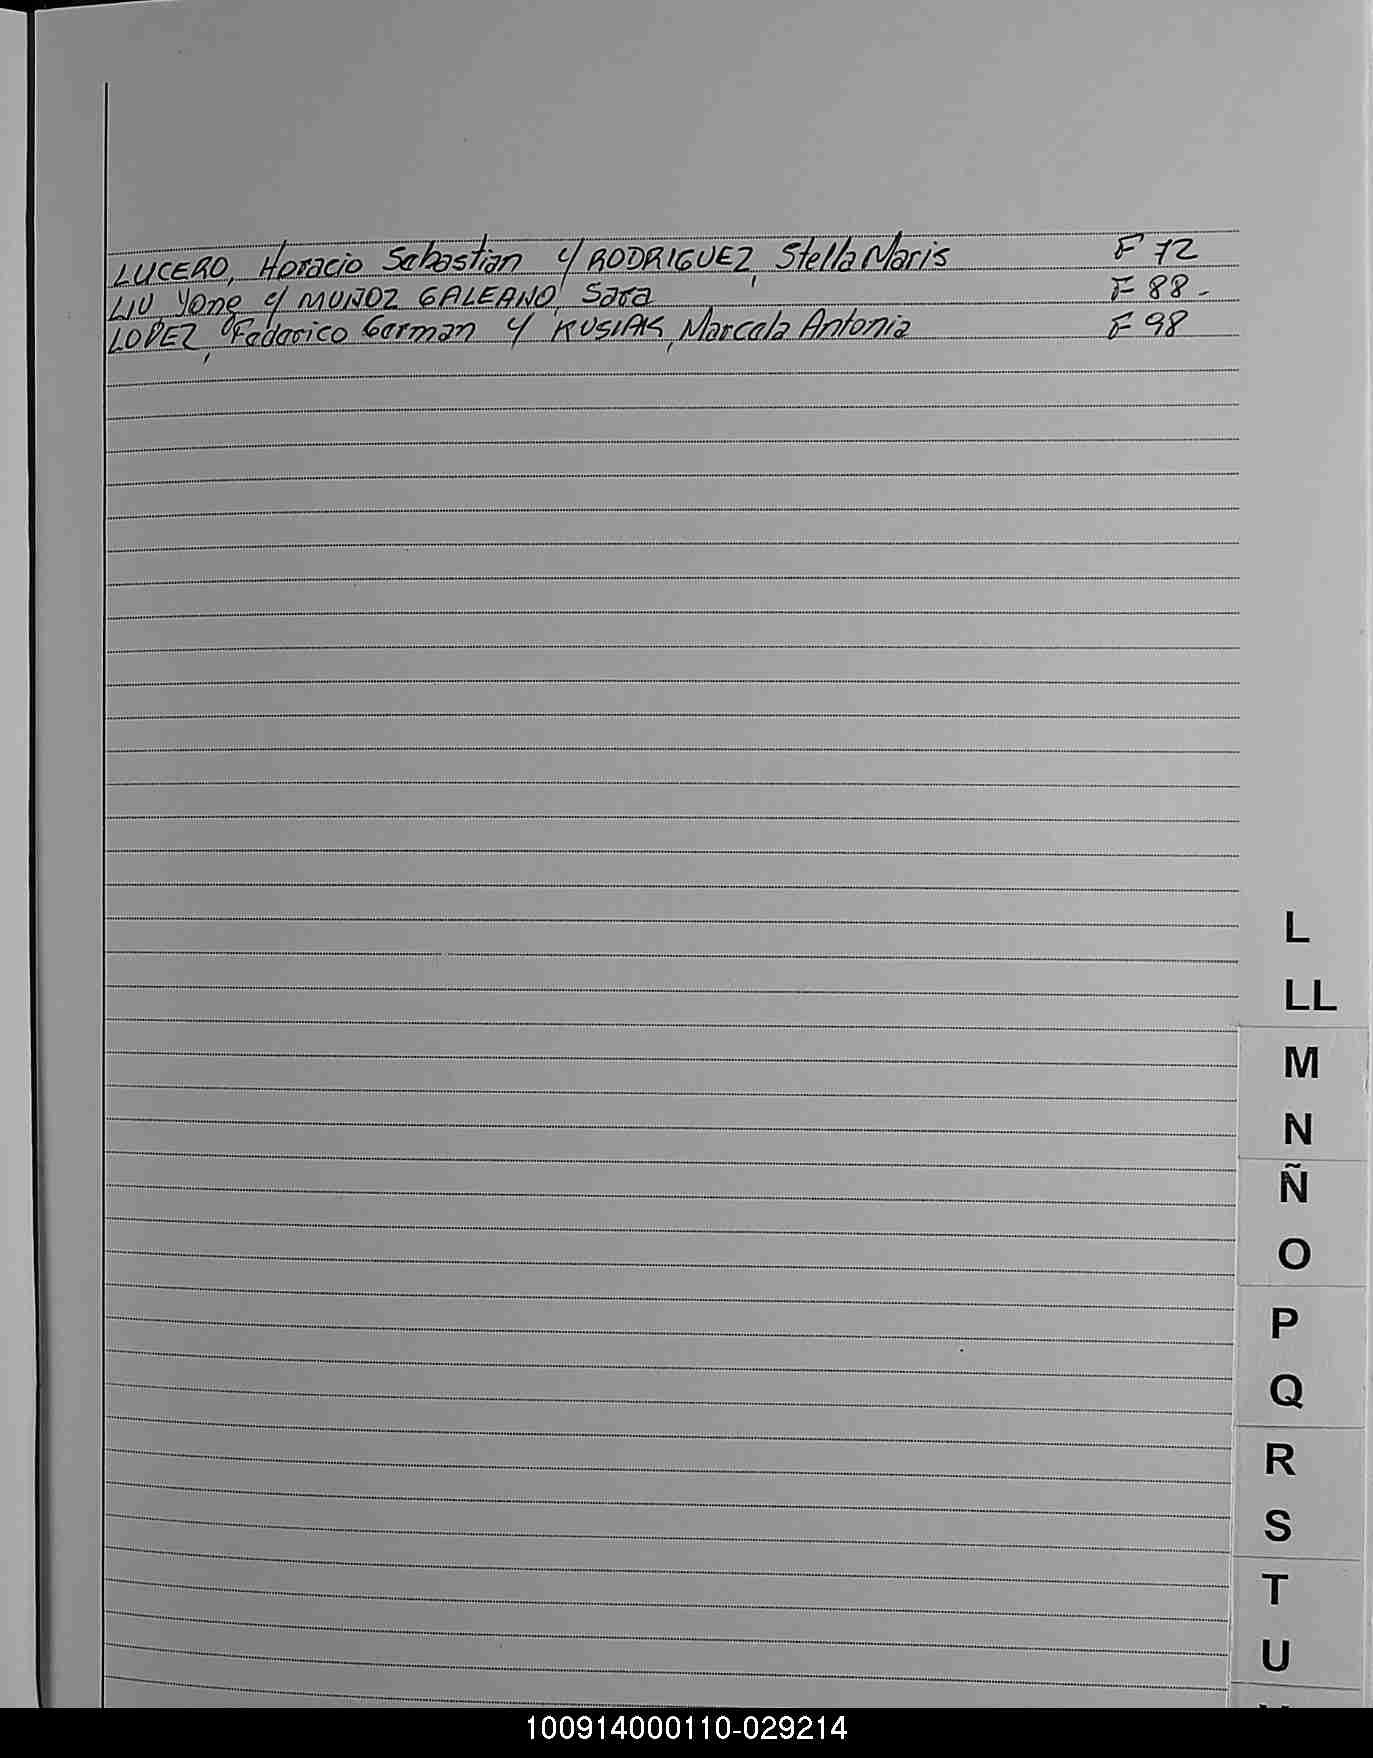 LUCERO, Horacio Sebastian y RODRIGUEZ, Stella Maris F 72
LIU, Yong y MUÑOZ GALEANO, Sara F 88-
LOPEZ, Federico German y KUSIAK, Marcela Antonia F 98
L
LL
M
N
Ñ
O
P
Q
R
S
T
U
100914000110-029214